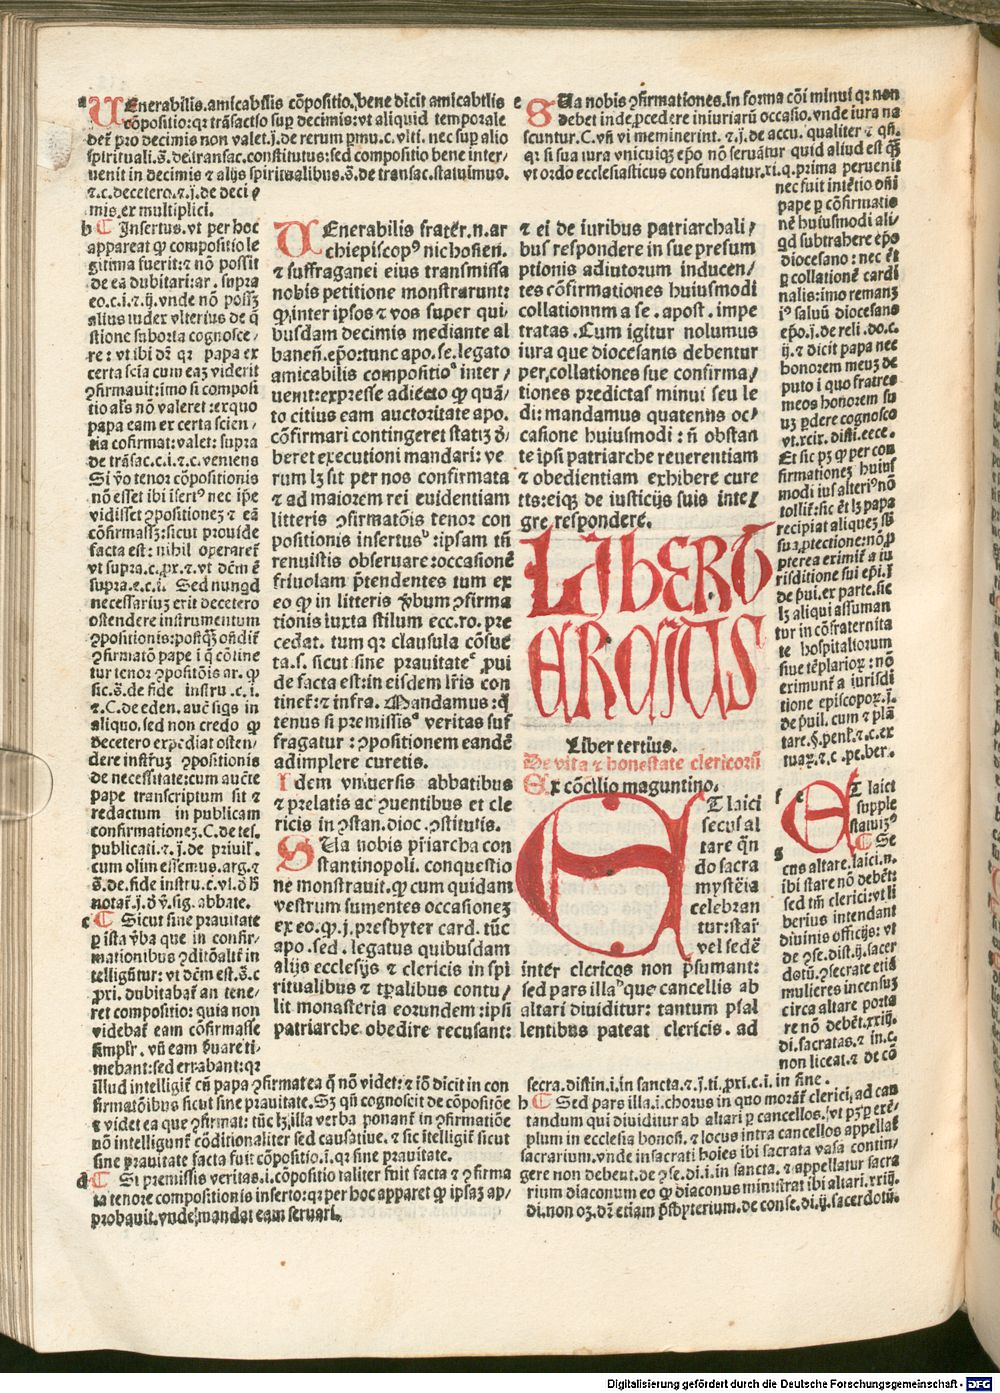 UEnerabilis.amicabilis cõpositio.bene dicit amicabilis
cõpositio:qꝛ trãsactio suꝑ decimis:vt aliquid temporale
det̃ pro decimis non valet.j.de rerum ꝑmu.c.vlti. nec suꝑ alio
spirituali.s̃.de transac.constitutus:sed compositio bene inter/
uenit in decimis ⁊ alijs spiritualibus.s̃.de transac.statuimus.
⁊.c.decetero.⁊.j.de deci
mis.ex multiplici.
b Insertus.vt per hoc
appareat ꝙ compositio le
gitima fuerit:⁊ nõ possit
de ea dubitari:ar. supra
eo.c.i.⁊.ij.vnde nõ possꝫ
alius iudex vlterius de q̃
stione suborta cognosce/
re: vt ibi dr̃ qꝛ papa ex
certa scia cum eaꝫ viderit
ꝯfirmauit:imo si composi
tio al's nõ valeret:ex quo
papa eam ex certa scien/
tia cõfirmat:valet: supra
de trãsac.c.i.⁊.c.veniens
Si ṽo tenor cõpositionis
nõ esset ibi iserꝰ nec ip̃e
vidisset ꝯpositioneꝫ ⁊ eã
cõfirmassꝫ:sicut prouide
facta est: nihil operaret̃
vt supra.c.pꝛ.⁊.vt dẽm ẽ
supra.e.c.i. Sed nunqd
necessariuꝫ erit decetero
ostendere instrumentum
ꝯpositionis:postqꝫ oñdit̃
ꝯfirmatõ pape i q̃ cõtine
tur tenor ꝯpositõis ar. ꝙ
sic.s̃.de fide instru.c.i.
⁊.C.de eden. auc̃ siqs in
aliquo.sed non credo ꝙ
decetero expediat osten/
dere instr̃uꝫ ꝯpositionis
de necessitate:cum auc̃te
pape transcriptum sit ⁊
redactum in publicam
confirmationeꝫ.C.de tes.
publicati.⁊.j.de priuil'.
cum olim essemus.arg.⁊
s̃.de.fide instru.c.vl.ð ħ
notat̃.j.ð ṽ.sig.abbate.
c Sicut sine prauitate
ꝑ ista v̾ba que in confir/
mationibus ꝯditõalit̃ in
telligũtur: vt dẽm est.s̃.c
pxi. dubitabat̃ an tene/
ret compositio: quia non
videbat̃ eam cõfirmasse
simpl'r. vñ eam ẜuare ti/
mebant:sed errabant:qꝛ
illud intelligit̃ cũ papa ꝯfirmat ea q̃ nõ videt:⁊ iõ dicit in con
firmatõibus sicut sine prauitate.Sꝫ qñ cognoscit de cõpositõe
⁊ videt ea que ꝯfirmat: tũc lꝫ.illa verba ponant̃ in ꝯfirmatiõe
nõ intelligunt̃ cõditionaliter sed causatiue.⁊ sic itelligit̃ sicut
sine prauitate facta fuit cõpositio.i.qꝛ sine prauitate.
d Si premissis veritas.i.cõpositio taliter fuit facta ⁊ ꝯfirma
ta tenore compositionis inserto:qꝛ per hoc apparet ꝙ ipsaꝫ ap/
probauit.vnde mandat eam seruari.
UEnerabilis frater.n.ar
chiepiscopꝰ nichosien.
⁊ suffraganei eius transmissa
nobis petitione monstrarunt:
ꝙ inter ipsos ⁊ vos super qui
busdam decimis mediante al
baneñ.epo:tunc apo.se.legato
amicabilis compositioᵃ inter/
uenit:expresse adiecto ꝙ quã/
to citius eam auctoritate apo.
cõfirmari contingeret statiꝫ ð/
beret executioni mandari: ve
rum lꝫ sit per nos confirmata
⁊ ad maiorem rei euidentiam
litteris ꝯfirmatõis tenor com
positionis insertusᵇ:ipsam tñ
renuistis obseruare:occasionẽ
friuolam p̃tendentes tum ex
eo ꝙ in litteris v̾bum ꝯfirma
tionis iuxta stilum ecc.ro.pre
cedat. tum qꝛ clausula cõsue
ta.s. sicut sine prauitateᶜ pui
de facta est:in eisdem l'ris con
tinet̃:⁊ infra. Mandamus:q̃
tenus si premissisᵈ veritas suf
fragatur: ꝯpositionem eandẽ
adimplere curetis.
Idem vniuersis abbatibus
⁊ prelatis ac ꝯuentibus et cle
ricis in ꝯstan.dioc.ꝯstitutis.
SUa nobis p̃riarcha con
stantinopoli. conquestio
nẽ monstrauit.ꝙ cum quidam
vestrum sumentes occasioneꝫ
ex eo.ꝙ.j.presbyter card. tũc
apo.sed.legatus quibusdam
alijs ecclesijs ⁊ clericis in spi
ritualibus ⁊ tꝑalibus contu/
lit monasteria eorundem:ipsi
patriarche obedire recusant:
⁊ ei de iuribus patriarchali/
bus respondere in sue presum
ptionis adiutorum inducen/
tes cõfirmationes huiusmodi
collationum a se.apost.impe
tratas.Cum igitur nolumus
iura que diocesanis debentur
per.collationes sue confirma/
tiones predictas minui seu le
di: mandamus quatenus oc/
casione huiusmodi: ñ obstan
te ipsi patriarche reuerentiam
⁊ obedientiam exhibere cure
tis:eiqꝫ de iusticijs suis inte/
gre respondere.
LIBER T
ERCIUS
Liber tertius.
De vita ⁊ honestate clericorũ
Ex cõcilio maguntino.
UT laici
secus al
tare qñ
do sacra
mystẽia
celebran
tur:star̃
vel sedẽ
inter clericos non p̃sumant:
sed pars illaʰ que cancellis ab
altari diuiditur: tantum psal
lentibus pateat clericis. ad
e SUa nobis ꝯfirmationes.in forma cõi minui qꝛ non
debet inde.ꝓcedere iniuriarũ occasio.vnde iura na
scuntur.C.vñ vi meminerint.⁊.j.de accu. qualiter ⁊ qñ.
qꝛ si sua iura vnicuiqꝫ epo nõ seruãtur quid aliud est qꝫ
vt ordo ecclesiasticus confundatur.xi.q.prima peruenit
nec fuit intẽtio dñi
pape ꝑ cõfirmatis
nẽ huiusmodi ali/
qd subtrahere epo
diocesano: nec ẽt
ꝑ collationẽ cardi
nalis:imo remanꝫ
iꝰ saluũ diocesano
epo.j.de reli.do.c.
ij.⁊ dicit papa nec
honorem meuꝫ de
puto i quo fratres
meos honorem su
uꝫ ꝑdere cognosco
vt.xcix.disti.ecce.
Et sic pꝫ ꝙ per con
firmationeꝫ huius
modi ius alteriꝰ nõ
tollit̃:sic ẽt lꝫ papa
recipiat aliqueꝫ sb̃
sua ꝓtectione:nõ ꝓ
pterea eximit̃ a iu
risditione sui epi.j.
de p̃ui.ex parte.sic
lꝫ aliqui assuman
tur in cõfraternita
te hospitaliorum
siue tẽplarioꝝ: nõ
eximunt̃ a iurisdi
tione episcopoꝝ.j.
de p̃uil. cum ⁊ plã
tare.§.penl't.⁊.c.ex
tuaꝝ.⁊.c.pe.ber.
f UT laici
supple
statuiꝫꝰ
g Se
cus altare.laici.n.
ibi stare nõ debẽt:
sed tm̃ clerici:vt li
berius intendant
diuinis officijs: vt
de ꝯse.dist.ij.sacer
dotũ.ꝯsecrate etiã
mulieres incensuꝫ
circa altare porta
re nõ debẽt.xxiij.
di.sacratas.⁊ in.c.
non liceat.⁊ de cõ
secra.distin.i.in sancta.⁊.j.ti.pxi.c.i.in fine.
h Sed pars illa.i.chorus in quo morãt̃ clerici.ad can
tandum qui diuiditur ab altari ꝑ cancellos.vt pꝫ ꝑ exẽ/
plum in ecclesia bonoñ.⁊ locus intra cancellos appellat̃
sacrarium.vnde insacrati hoies ibi sacrata vasa contin/
gere non debent.de ꝯse.di.i.in sancta.⁊ appellatur sacra
rium diaconum eo ꝙ diaconus ministrat ibi altari.xxiij.
di.non oꝫ.dr̃ etiam p̃sbyterium.de conse.di.ij.sacerdotũ.
Digitalisierung gefördert durch die Deutsche Forschungsgemeinschaft - DFG